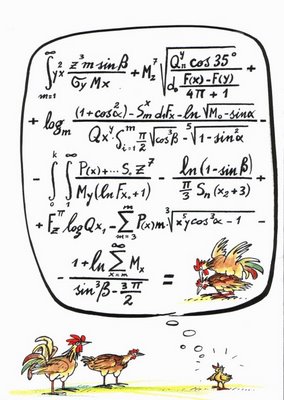 ∫_{m=1}^{∞} y x² (z³ m·sinβ)/(σ_y Mx) + M_z⁷ √( (Q_n^π cos 35°)/(d_0 (F(x)-F(y))/(4π+1)) ) +
+ log_m ((1+cos²α) - S_m^x dnFx - ln √(M_0 - sinα))/(Qx^y ∫_{i=1}^{m} π/2 √(cos³β) · ⁵√(1-sin²α)) -
- ∫_0^k ∫_1^∞ (P(x)+...S_c z⁷)/(M_y(ln Fx_1+1)) - (ln(1-sinβ))/(π/3 S_n(x_2+3)) +
+ F_z^π log Qx_1 - Σ_{m=3}^{m} P(x)m · ³√(x⁵y cos³α - 1) -
- (1+ln Σ_{x=m}^{∞} M_x)/(sin³β - 3π/2) =